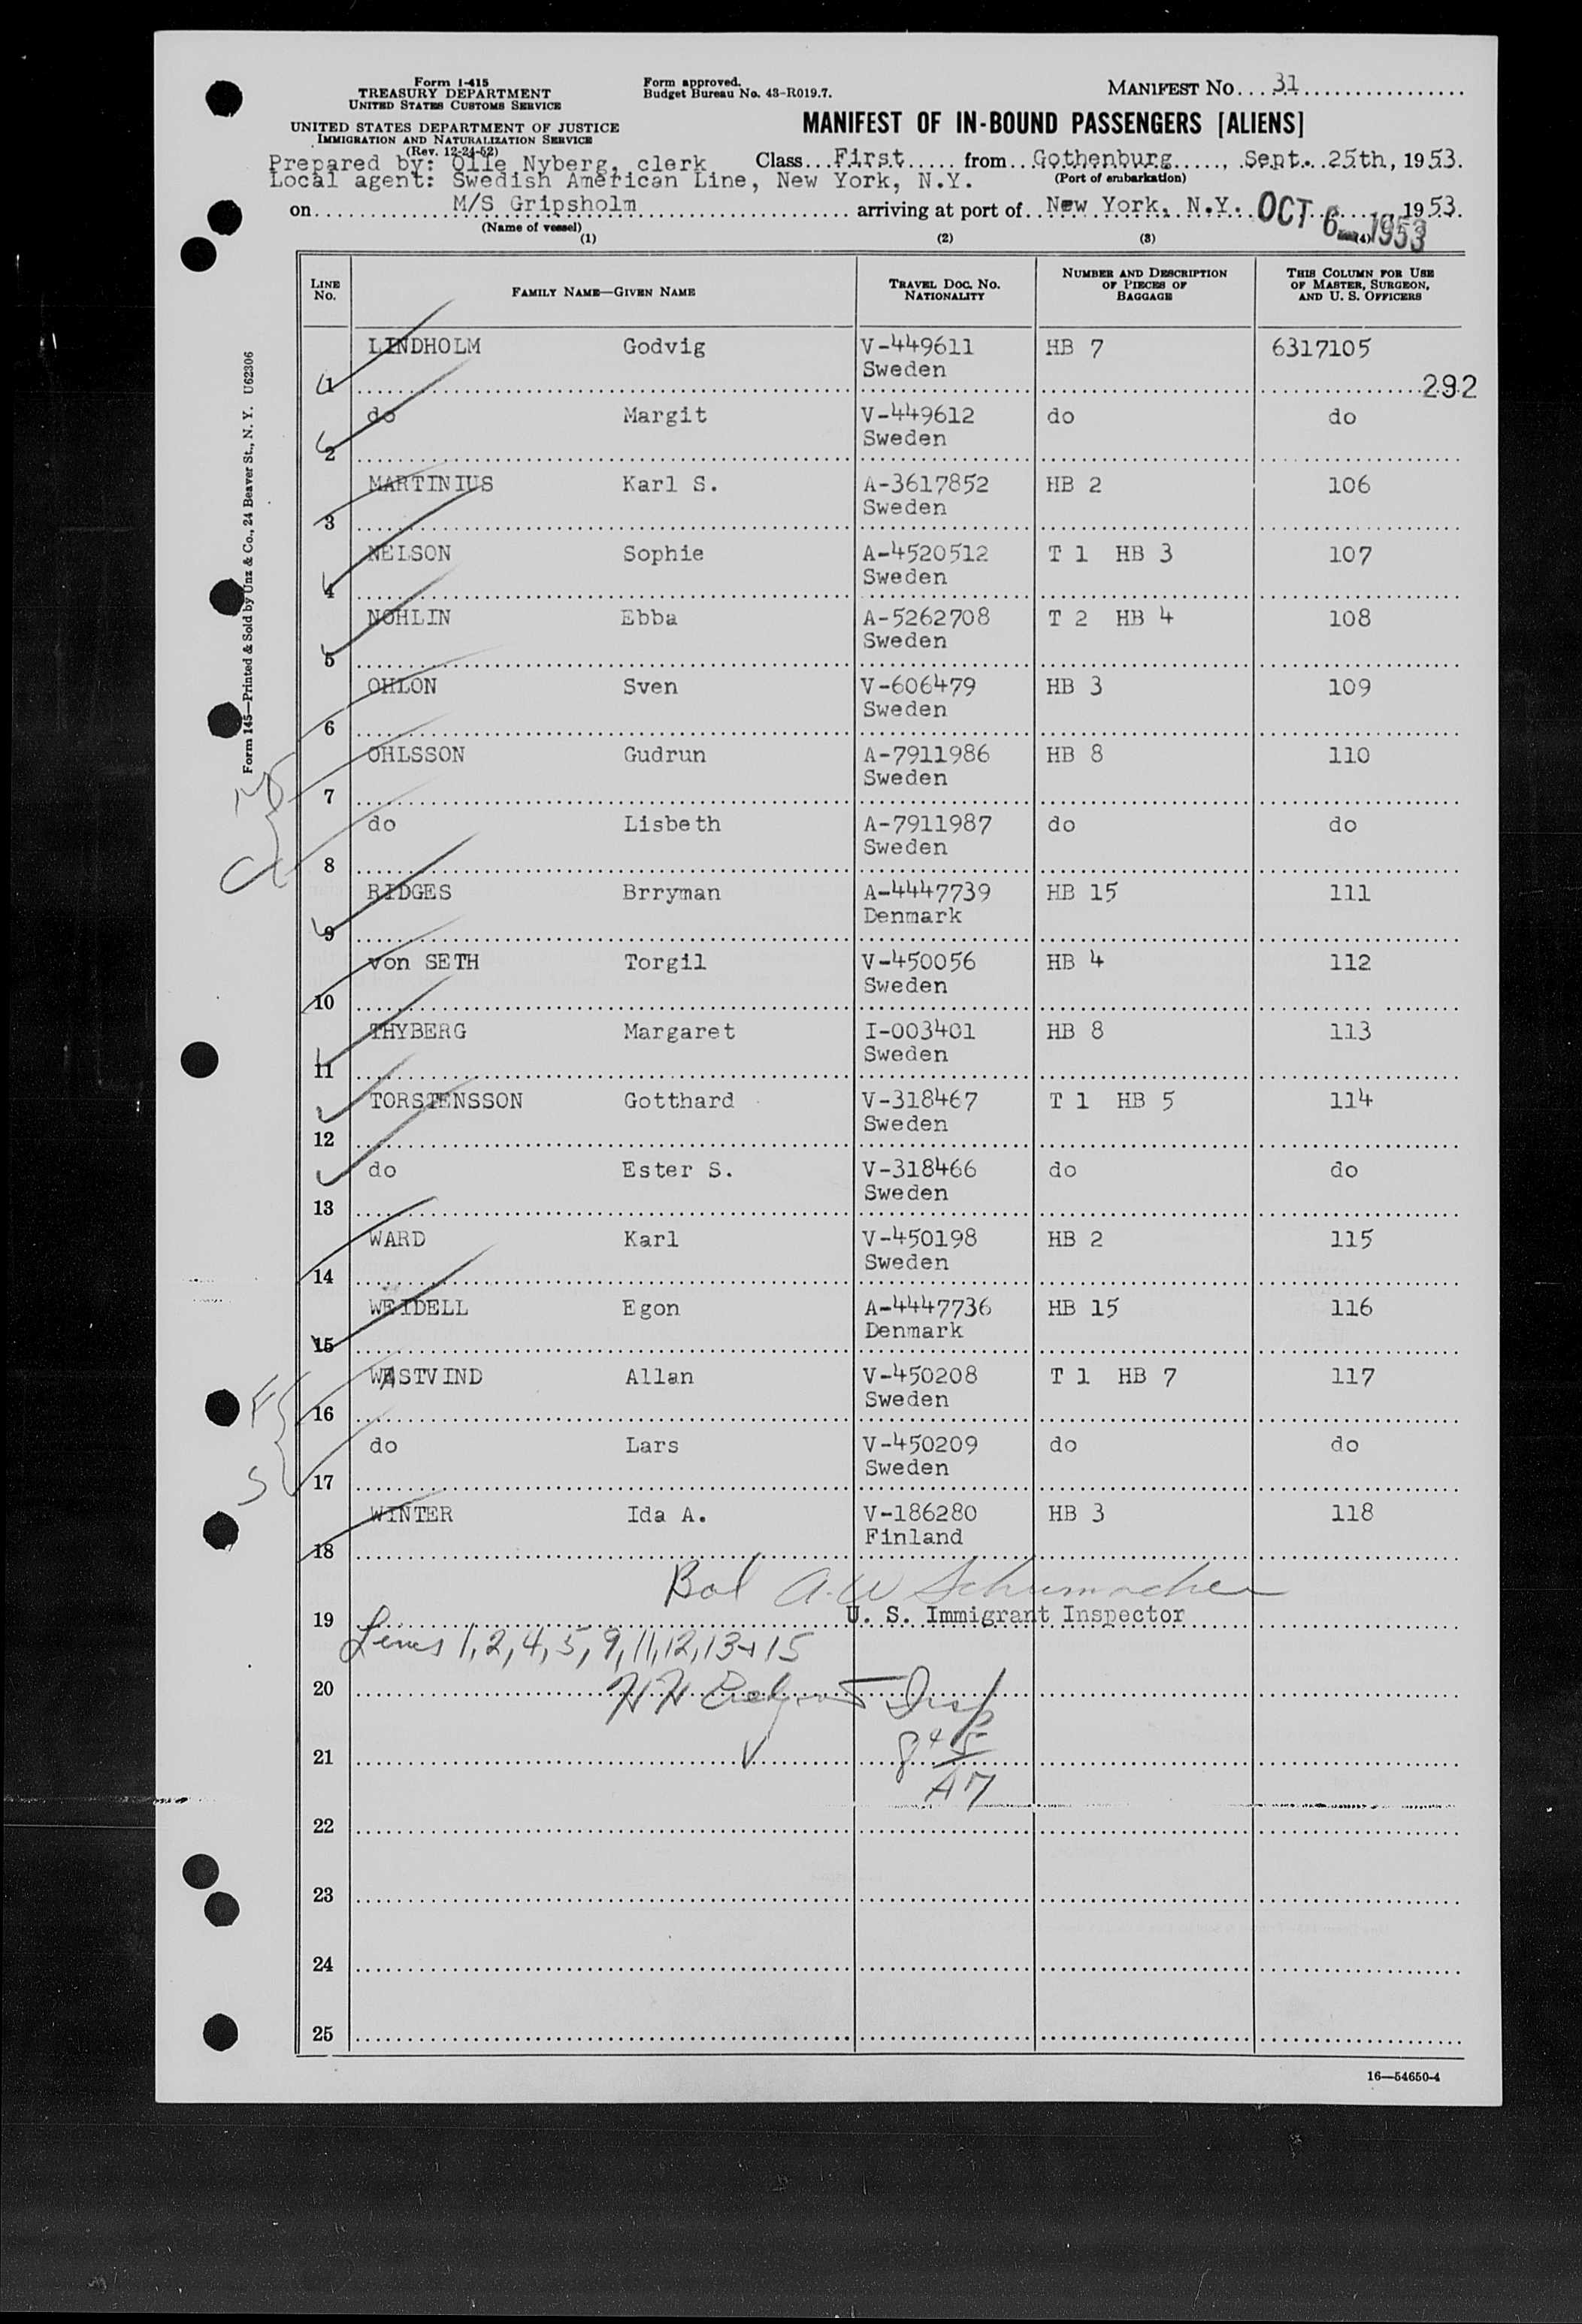 Form I-415
TREASURY DEPARTMENT
UNITED STATES CUSTOMS SERVICE
Form approved.
Budget Bureau No. 43-R019.7.
MANIFEST NO. 31
UNITED STATES DEPARTMENT OF JUSTICE
IMMIGRATION AND NATURALIZATION SERVICE
(Rev. 12-24-52)
MANIFEST OF IN-BOUND PASSENGERS [ALIENS]
Prepared by: Olle Nyberg, clerk
Class First from Gothenburg, Sept. 25th, 1953.
Local agent: Swedish American Line, New York, N.Y.
(Port of embarkation)
on M/S Gripsholm arriving at port of New York, N.Y. OCT 6 1953 1953.
(Name of vessel)
(1) (2) (3) (4)
LINE No. FAMILY NAME—GIVEN NAME TRAVEL DOC. NO. NATIONALITY NUMBER AND DESCRIPTION OF PIECES OF BAGGAGE THIS COLUMN FOR USE OF MASTER, SURGEON, AND U. S. OFFICERS
LINDHOLM Godvig V-449611 HB 7 6317105
1 Sweden 292
do Margit V-449612 do do
2 Sweden
MARTINIUS Karl S. A-3617852 HB 2 106
3 Sweden
NELSON Sophie A-4520512 T 1 HB 3 107
4 Sweden
NOHLIN Ebba A-5262708 T 2 HB 4 108
5 Sweden
OHLON Sven V-606479 HB 3 109
6 Sweden
OHLSSON Gudrun A-7911986 HB 8 110
7 Sweden
do Lisbeth A-7911987 do do
8 Sweden
RIDGES Brryman A-4447739 HB 15 111
9 Denmark
von SETH Torgil V-450056 HB 4 112
10 Sweden
THYBERG Margaret I-003401 HB 8 113
11 Sweden
TORSTENSSON Gotthard V-318467 T 1 HB 5 114
12 Sweden
do Ester S. V-318466 do do
13 Sweden
WARD Karl V-450198 HB 2 115
14 Sweden
WEIDELL Egon A-4447736 HB 15 116
15 Denmark
WASTVIND Allan V-450208 T 1 HB 7 117
16 Sweden
do Lars V-450209 do do
17 Sweden
WINTER Ida A. V-186280 HB 3 118
18 Finland
Bal A. W Schumacher
19 U. S. Immigrant Inspector
Lines 1, 2, 4, 5, 9, 11, 12, 13 + 15
20 Insp
21
22
23
24
25
16—54650-4
Form 145—Printed & Sold by Unz & Co., 24 Beaver St., N. Y. U62306
F
S